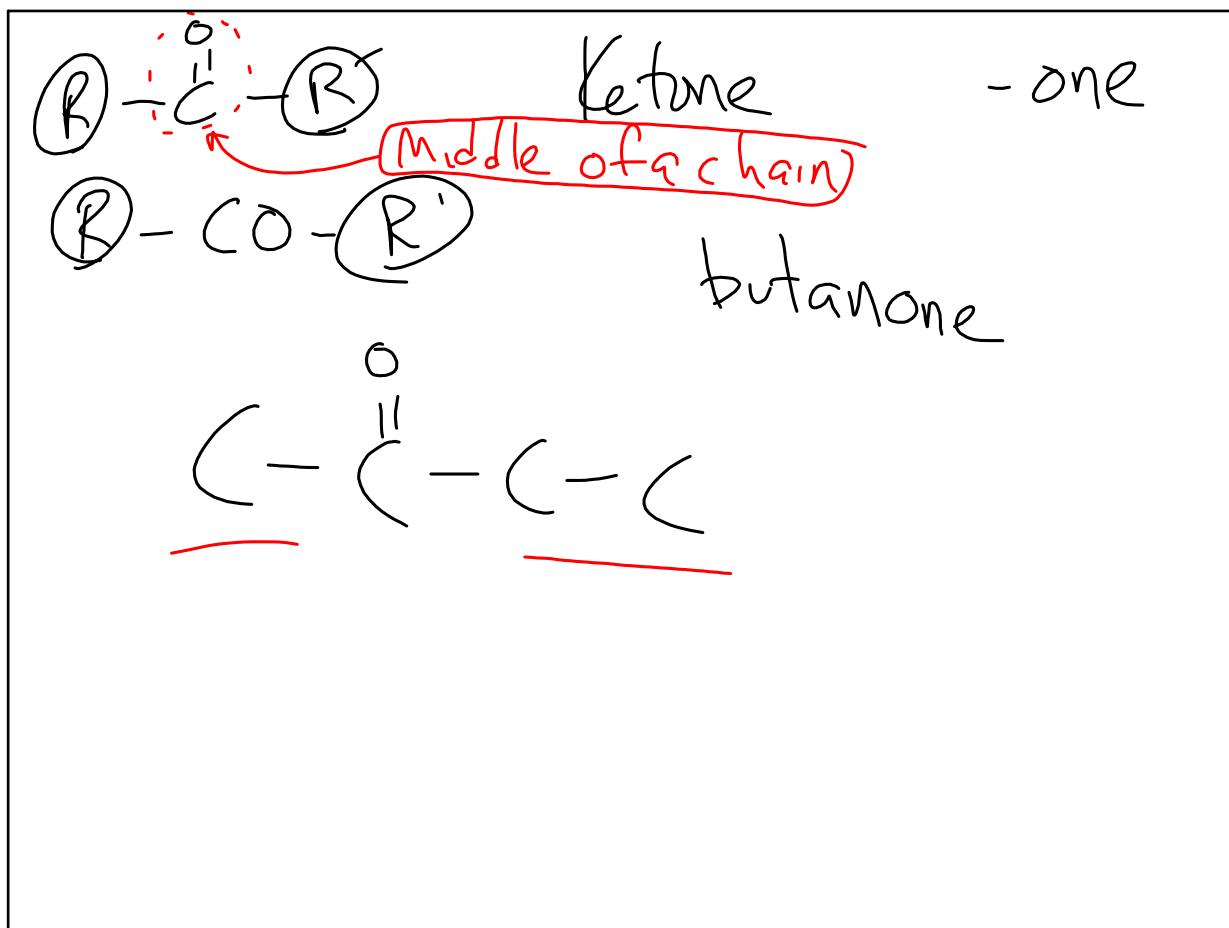 O
||
R - C - R' Ketone - one
Middle of a chain
R - CO - R'
butanone
O
||
C - C - C - C